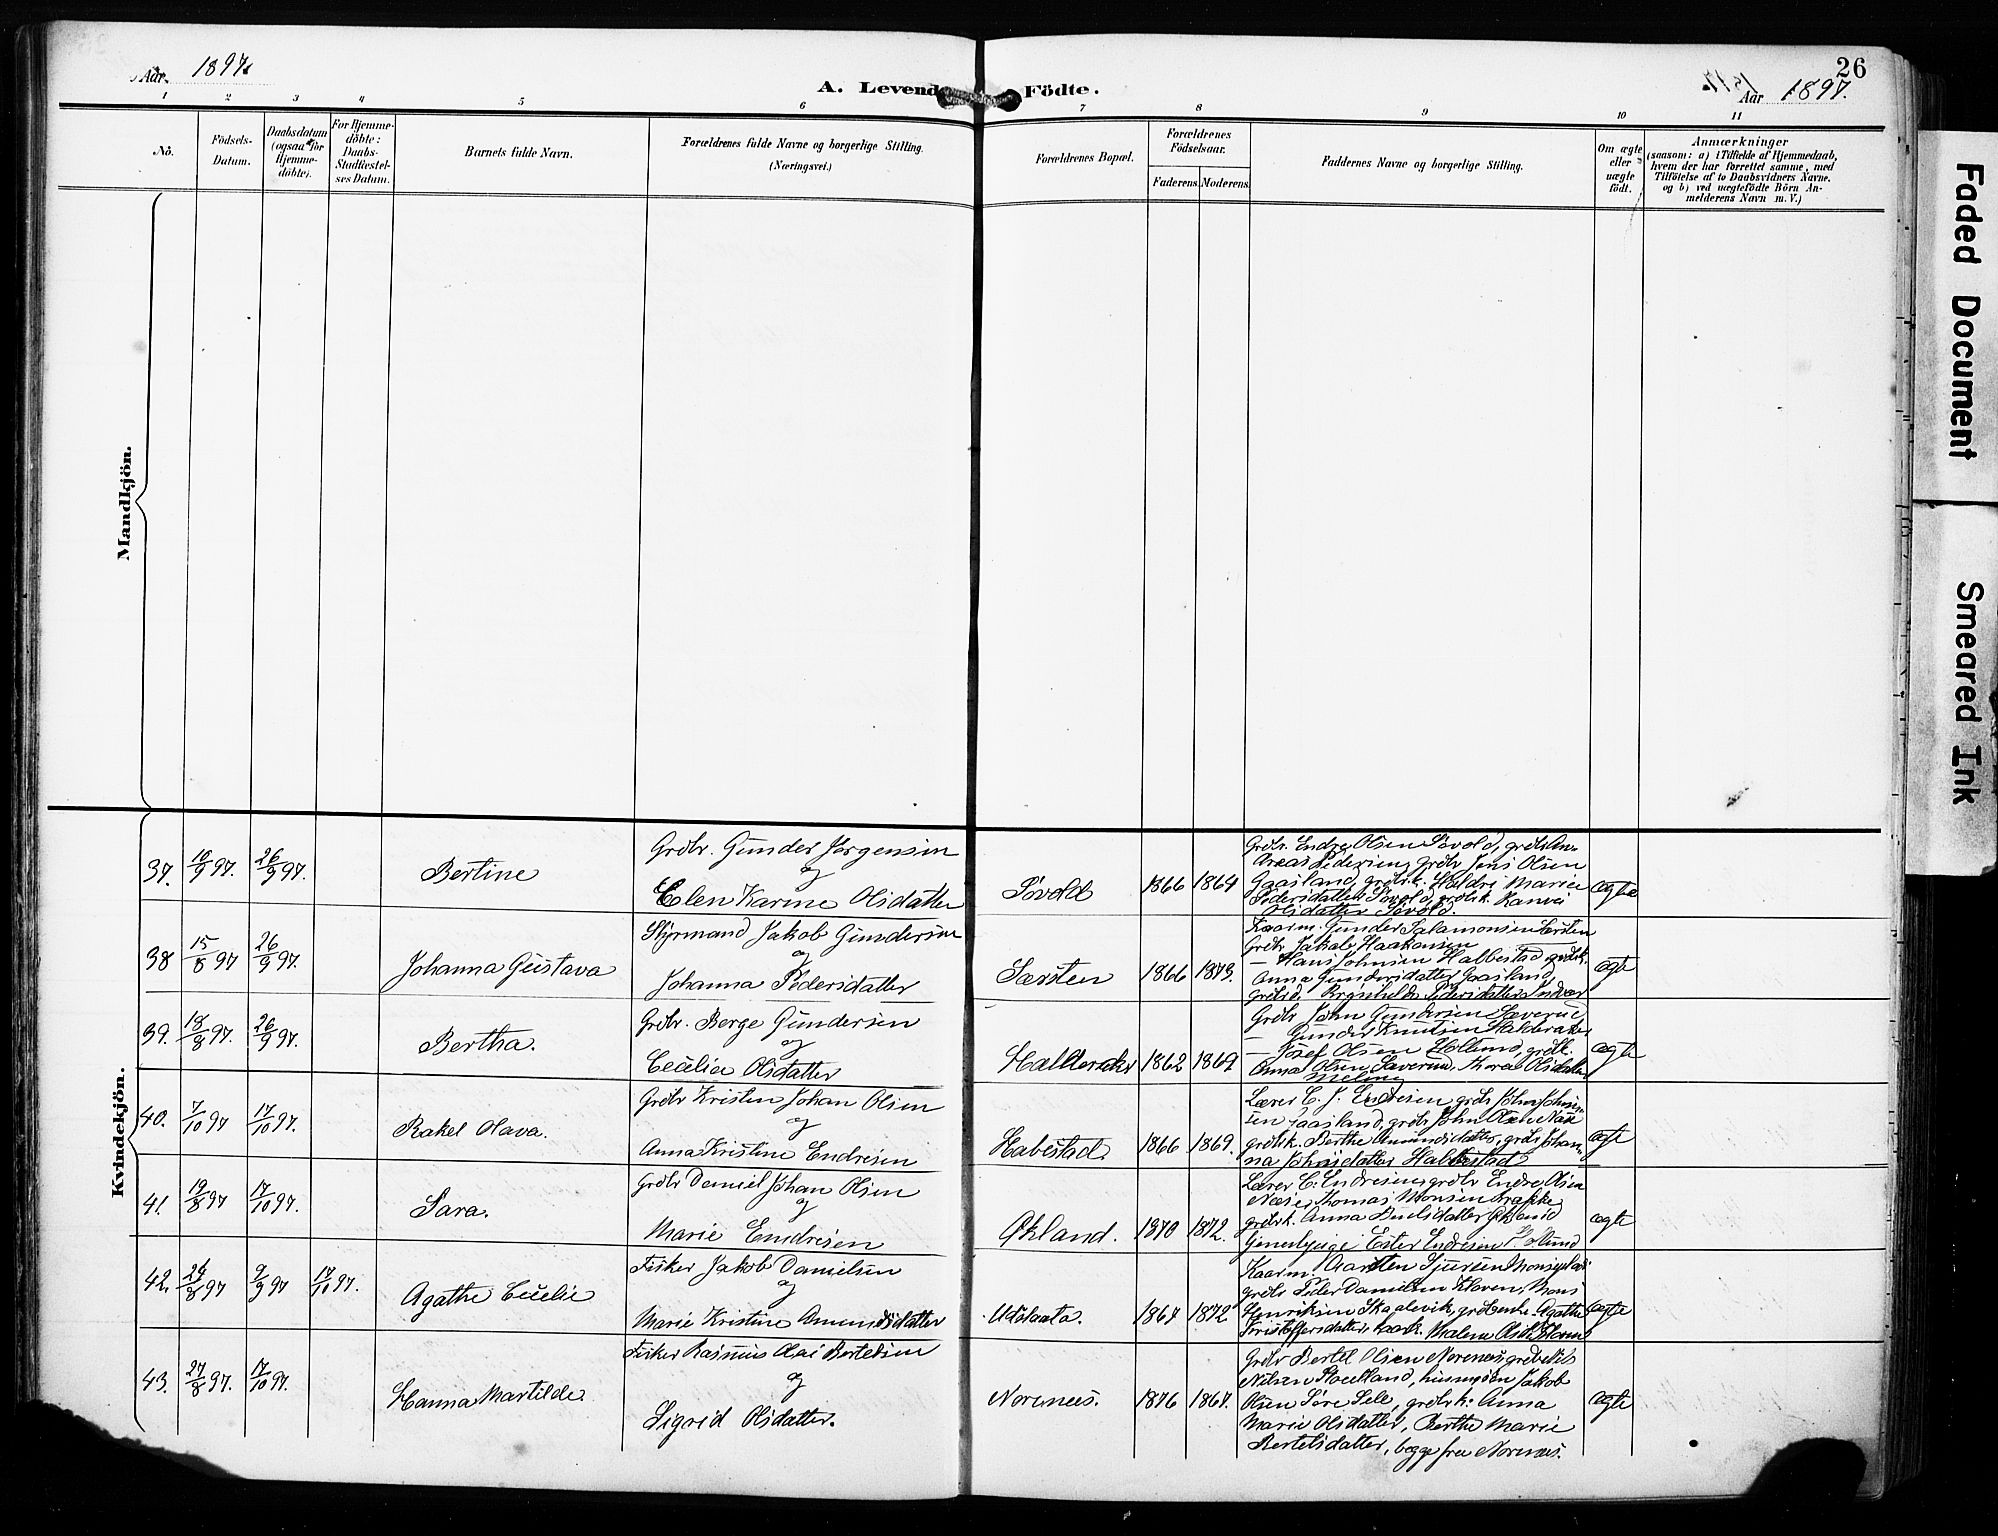 26
Aar 1897.
A. Levende Födte.
Aar 1897.
1 2 3 4 5 6 7 8 9 10 11
Nô.
Födsels-
Datum.
Daabsdatum
(ogsaa for
Hjemme-
döbte).
For Hjemme-
döbte:
Daabs-
Stadfæstel-
ses Datum.
Barnets fulde Navn.
Forældrenes fulde Navne og borgerlige Stilling.
(Næringsvei.)
Forældrenes Bopæl.
Forældrenes
Födselsaar.
Faderens. Moderens.
Faddernes Navne og borgerlige Stilling.
Om ægte
eller
uægte
födt.
Anmærkninger
(saasom: a) i Tilfælde af Hjemmedaab,
hvem der har forrettet samme, med
Tilföielse af to Daabsvidners Navne.
og b) ved uægtefödte Börn An-
melderens Navn m. V.)
Mandkjön.
Kvindekjön.
37. 10/9 97. 26/9 97. Bertine
Grdbr. Gunder Jørgensen
og
Elen Karine Olsdatter
Søvold 1866 1864
Grdbr. Endre Olsen Søvold, grdbr. An-
dreas Pedersen, grdbr. Jens Olsen
Gaasland, grdbrk. Haldri Marie
Pedersdatter Søvold, grdbrk. Ranvei
Olsdatter Søvold.
ægte
38 15/8 97 26/9 97. Johanna Gustava
Styrmand Jakob Gundersen
og
Johanna Pedersdatter
Særsten 1866 1873.
Kaarm. Gunder Salamonsen Særsten
Grdbr Jakob Haakonsen
— Hans Johnsen Halbestad, grdbrk.
Anna Gundersdatter Gaasland,
Brynhilde Pedersdatter
ægte
39. 18/8 97. 26/9 97. Bertha.
Grdbr. Berge Gundersen
og
Cecilia Olsdatter
Halleraker 1862 1869
Grdbr John Gundersen Sæverud
— Gunder Knutsen Halderaker
— Josef Olsen Hollund, grdbrk.
Anna Olsen Sæverud, Thora Olsdatter
Meling
ægte
40. 7/10 97 17/10 97. Rakel Olava.
Grdbr Kristen Johan Olsen
og
Anna Kristine Endresen
Habestad. 1866 1869.
Lærer C. J. Endresen, grdbr John Johne-
sen Gaasland, grdbr. John Olsen Næse
grdbrk. Berthe Amundsdatter, grdbr. Johan-
na Johnsdatter Halbestad
ægte
41. 19/8 97 17/10 97. Sara.
Grdbr Daniel Johan Olsen
og
Marie Endresen
Økland. 1870 1872.
Lærer C. Endresen, grdbr Endre Olsen
Næse, Thomas Monsen Krakke
grdbrk. Anna Økland
Ester Endresen
ægte
42. 24/8 97 9/9 97 17/10 97. Agathe Cecelie
Fisker Jakob Danielsen
og
Marie Kristine Amundsdatter
Udslaata. 1867 1872
Kaarm. Gjursen
grdbr Peder Danielsen Kloven, Mons
Henriksen Skaalevik, Agathe
Kristoffersdatter, kaark. Malene
ægte
43. 27/8 97. 17/10 97. Hanna Martilde.
Fisker Rasmus Olai Bertelsen
og
Sigrid Olsdatter.
Norenæs. 1876 1867.
Grdbr Bertel Olsen Norenæs, grdbr Nils
Nilsen Stockland, husmgsen Jakob
Olsen Søre Sele, grdbrk. Anna
Marie Olsdatter, Berthe Marie
Bertelsdatter, begge fra Norenæs.
ægte
Faded Document
Smeared Ink